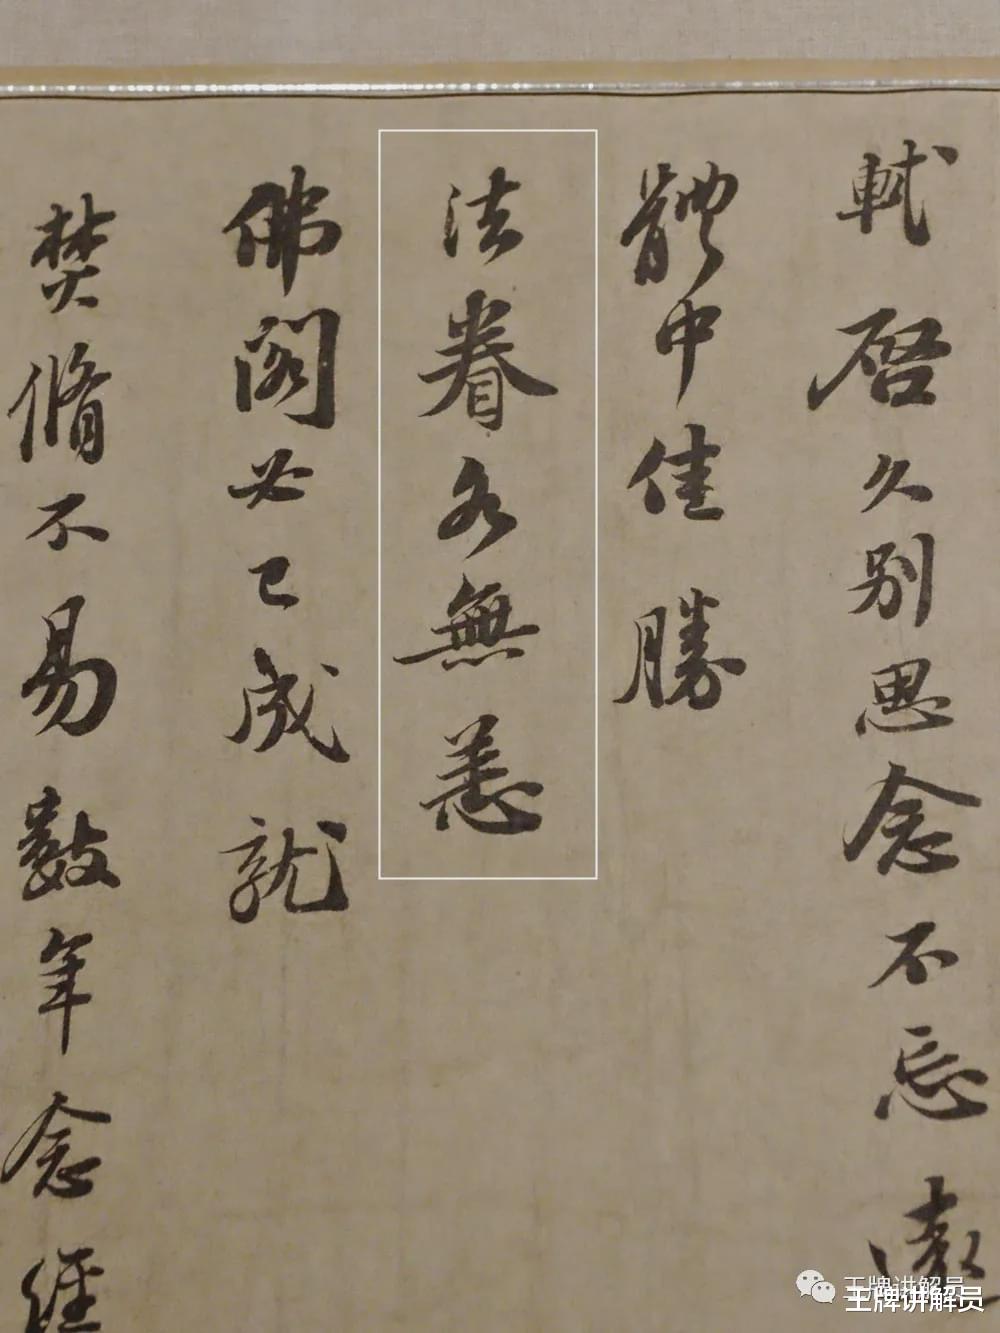 軾啓久别思念不忘遠
體中佳勝
法眷各無恙
佛閣必已成就
焚脩不易數年念經
王牌讲解员
王牌讲解员